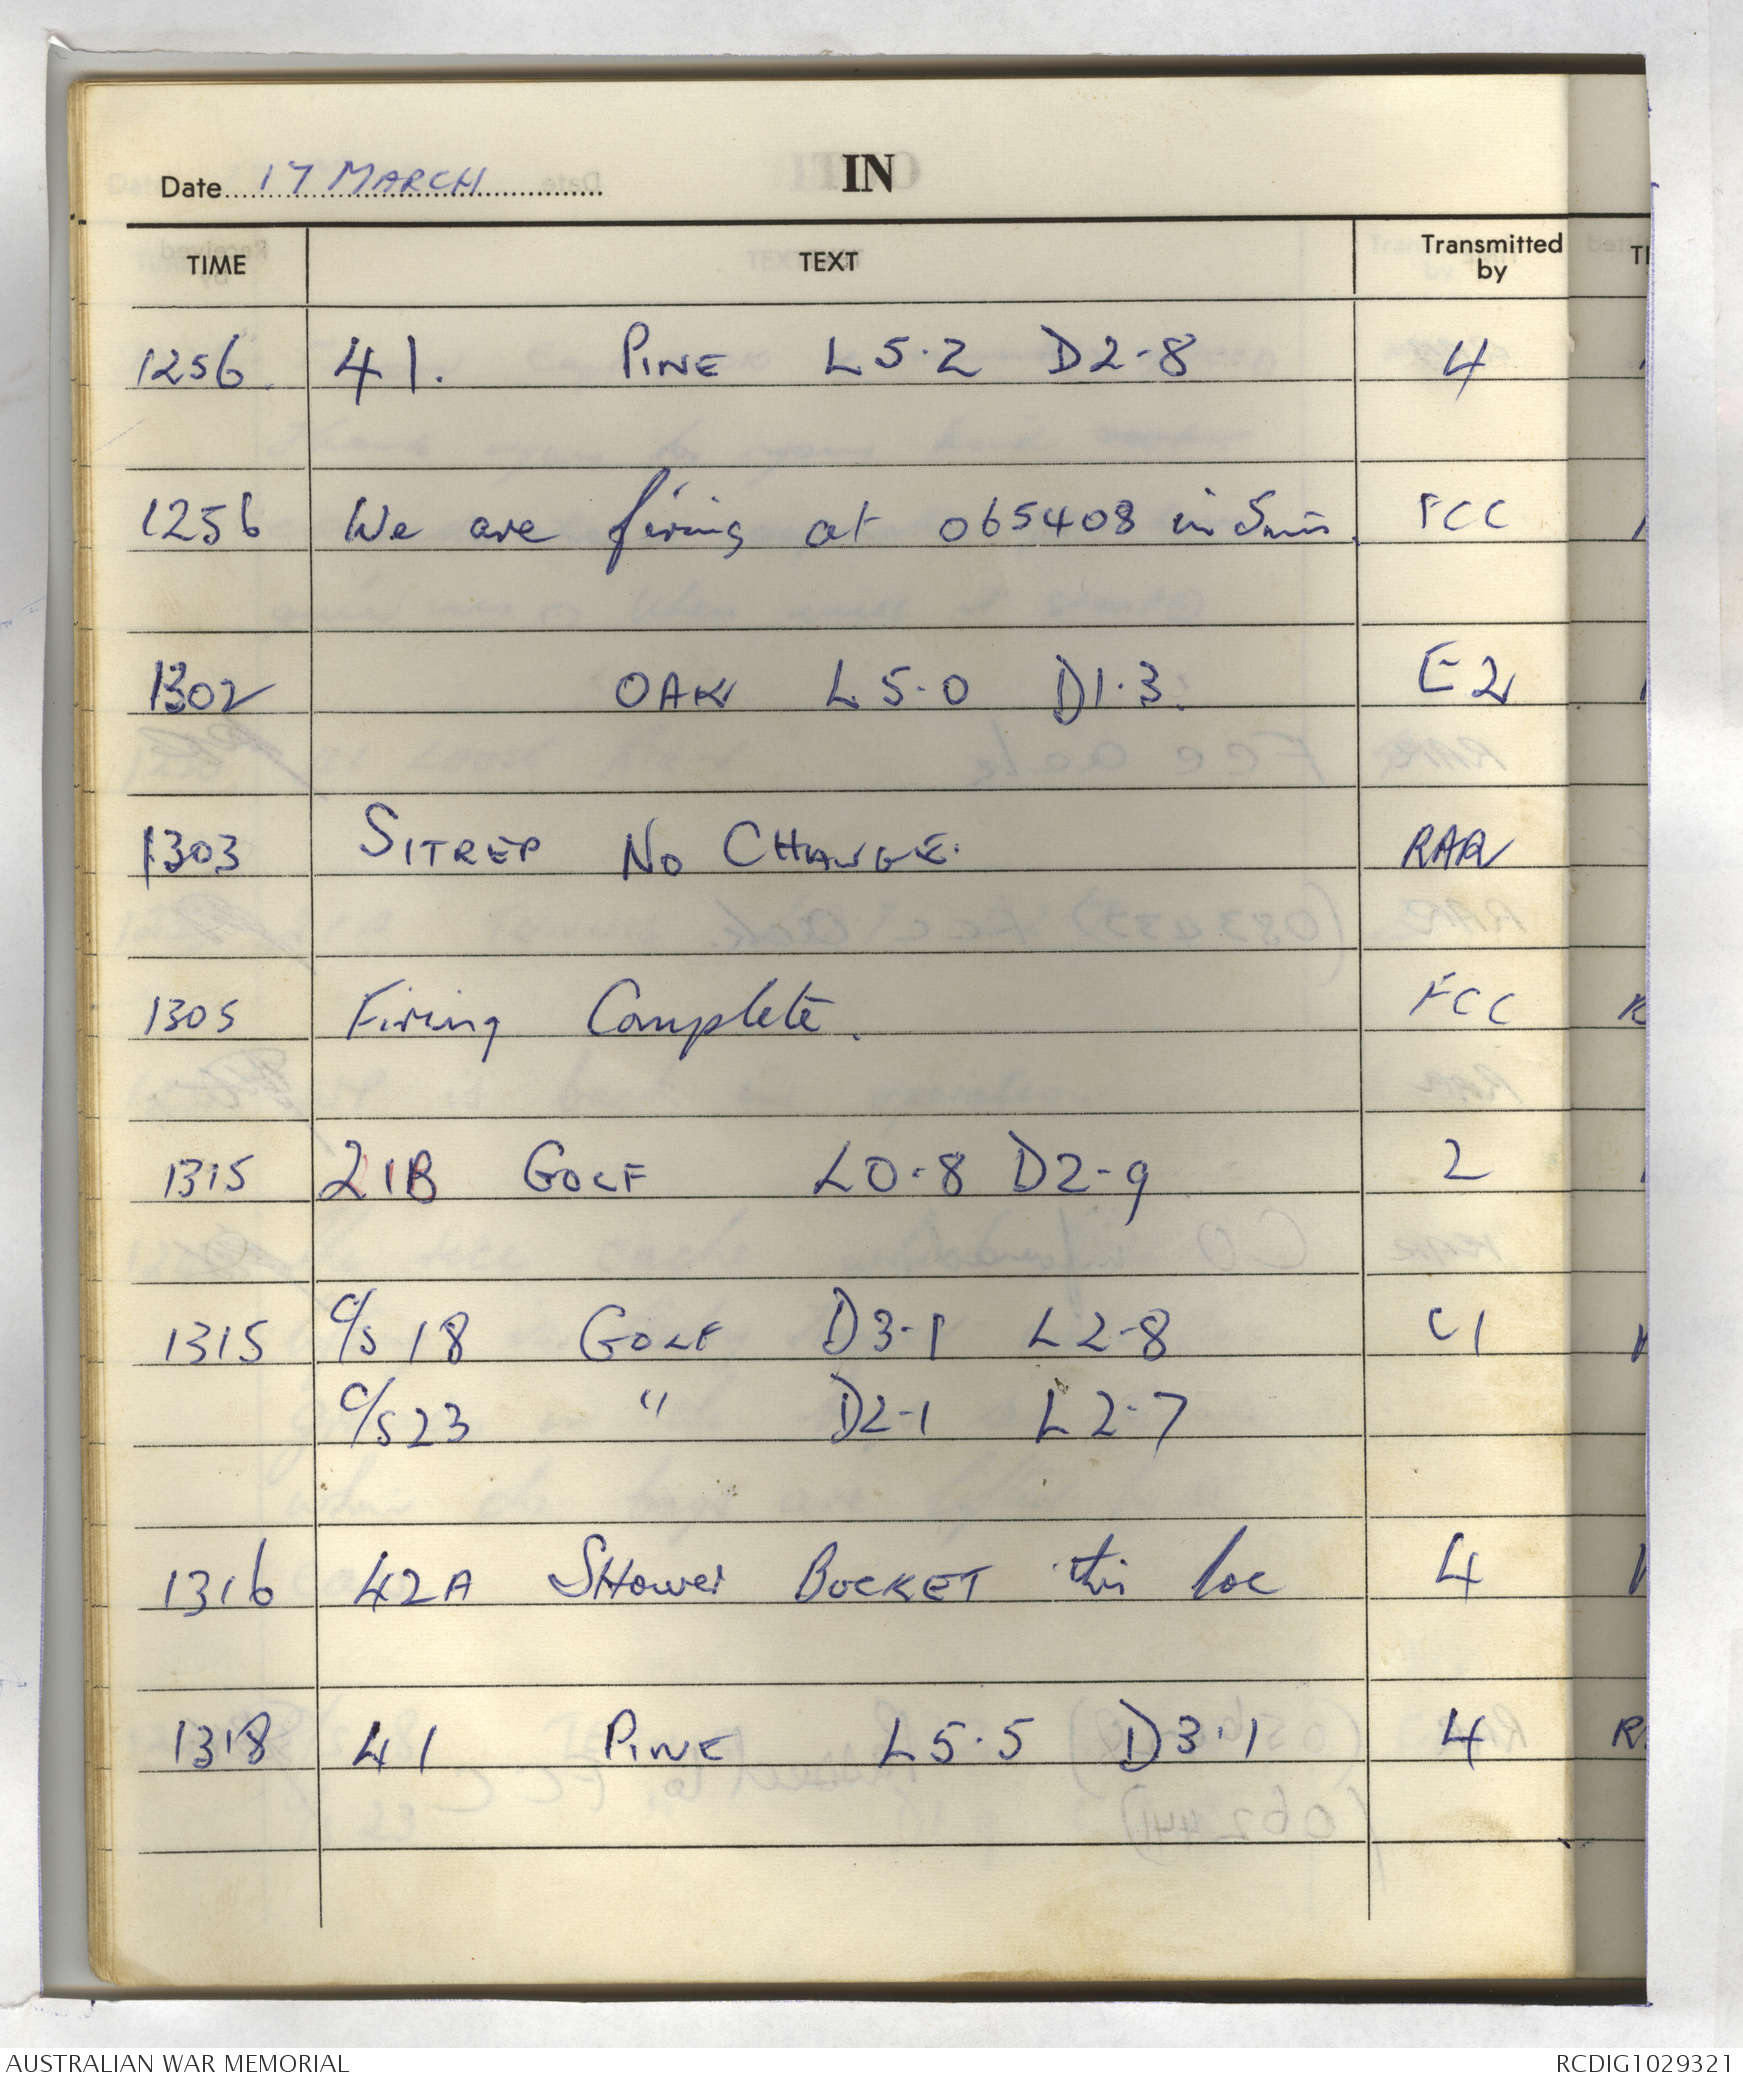 Date 17 MARCH
IN
TIME TEXT Transmitted by
1256 41. PINE L5.2 D2-8 4
1256 We are firing at 065408 in 5 min. FCC
1302 OAK L5.0 D1.3. E2
1303 SITREP NO CHANGE. RAR
1305 Firing Complete. FCC
1315 21B GOLF L0-8 D2-9 2
1315 C/S 18 GOLF D3-1 L2-8 C1
C/S 23 " D2-1 L2-7
1316 42A SHower BUCKET this loc 4
1318 41 PINE L5.5 D3.1 4
AUSTRALIAN WAR MEMORIAL
RCDIG1029321